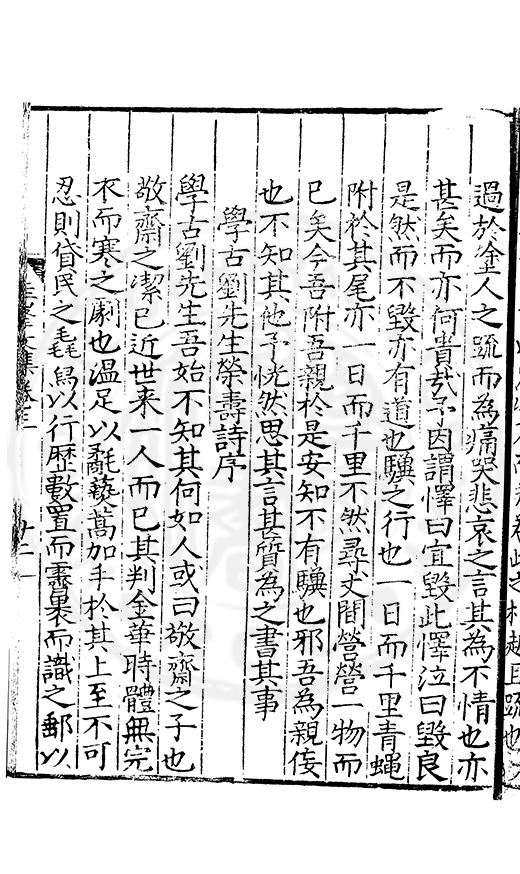 過於塗人之䟽而為痛哭悲哀之言其為不情也亦
甚矣而亦何貴哉予因謂懌曰宜毀此懌泣曰毀良
是然而不毀亦有道也驥之行也一日而千里青蠅
附於其尾亦一日而千里不然尋丈間營營一物而
已矣今吾附吾親於是安知不有驥也邪吾為親侫
也不知其他予恍然思其言甚質為之書其事
學古劉先生榮壽詩序
學古劉先生吾始不知其何如人或曰敬齋之子也
敬齋之潔已近世来一人而已其判金華時體無完
衣而寒之劇也温足以
蒿加手於其上至不可
忍則貸民之毳焉以行歷數置而裹而識之郵以
文集卷三
十二